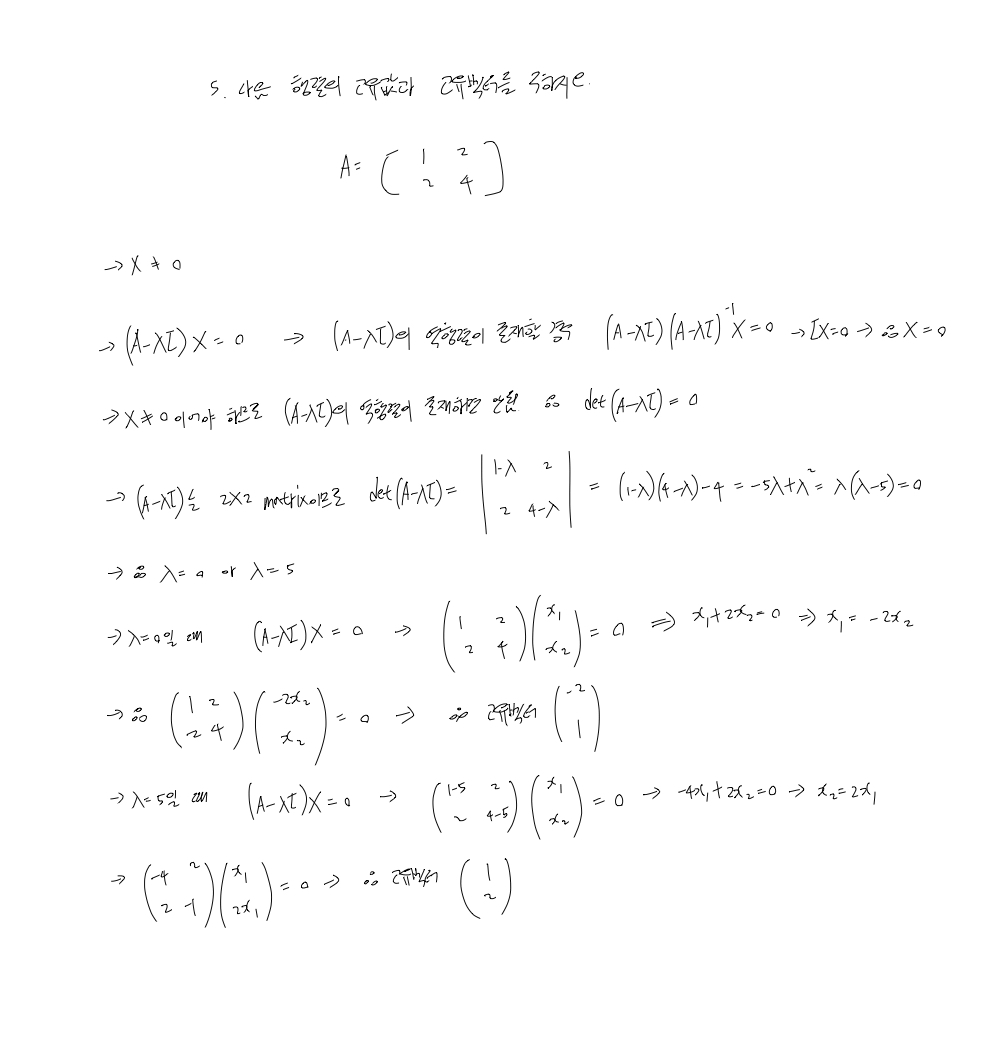 5. 다음 행렬의 고유값과 고유벡터를 구하시오.
A = ( 1 2
2 4 )
→ X ≠ 0
→ (A-λI)X = 0 → (A-λI)의 역행렬이 존재할 경우 (A-λI)(A-λI)⁻¹X = 0 → IX=0 → ∴ X = 0
→ X ≠ 0 이어야 하므로 (A-λI)의 역행렬이 존재하면 안됨 ∴ det(A-λI) = 0
→ (A-λI)는 2X2 matrix이므로 det(A-λI) = | 1-λ 2
2 4-λ | = (1-λ)(4-λ)-4 = -5λ+λ² = λ(λ-5) = 0
→ ∴ λ = 0 or λ = 5
→ λ=0일 때 (A-λI)X = 0 → ( 1 2
2 4 )( x₁
x₂ ) = 0 ⇒ x₁+2x₂ = 0 ⇒ x₁ = -2x₂
→ ∴ ( 1 2
2 4 )( -2x₂
x₂ ) = 0 → ∴ 고유벡터 ( -2
1 )
→ λ=5일 때 (A-λI)X = 0 → ( 1-5 2
2 4-5 )( x₁
x₂ ) = 0 → -4x₁+2x₂=0 → x₂=2x₁
→ ( -4 2
2 -1 )( x₁
2x₁ ) = 0 → ∴ 고유벡터 ( 1
2 )